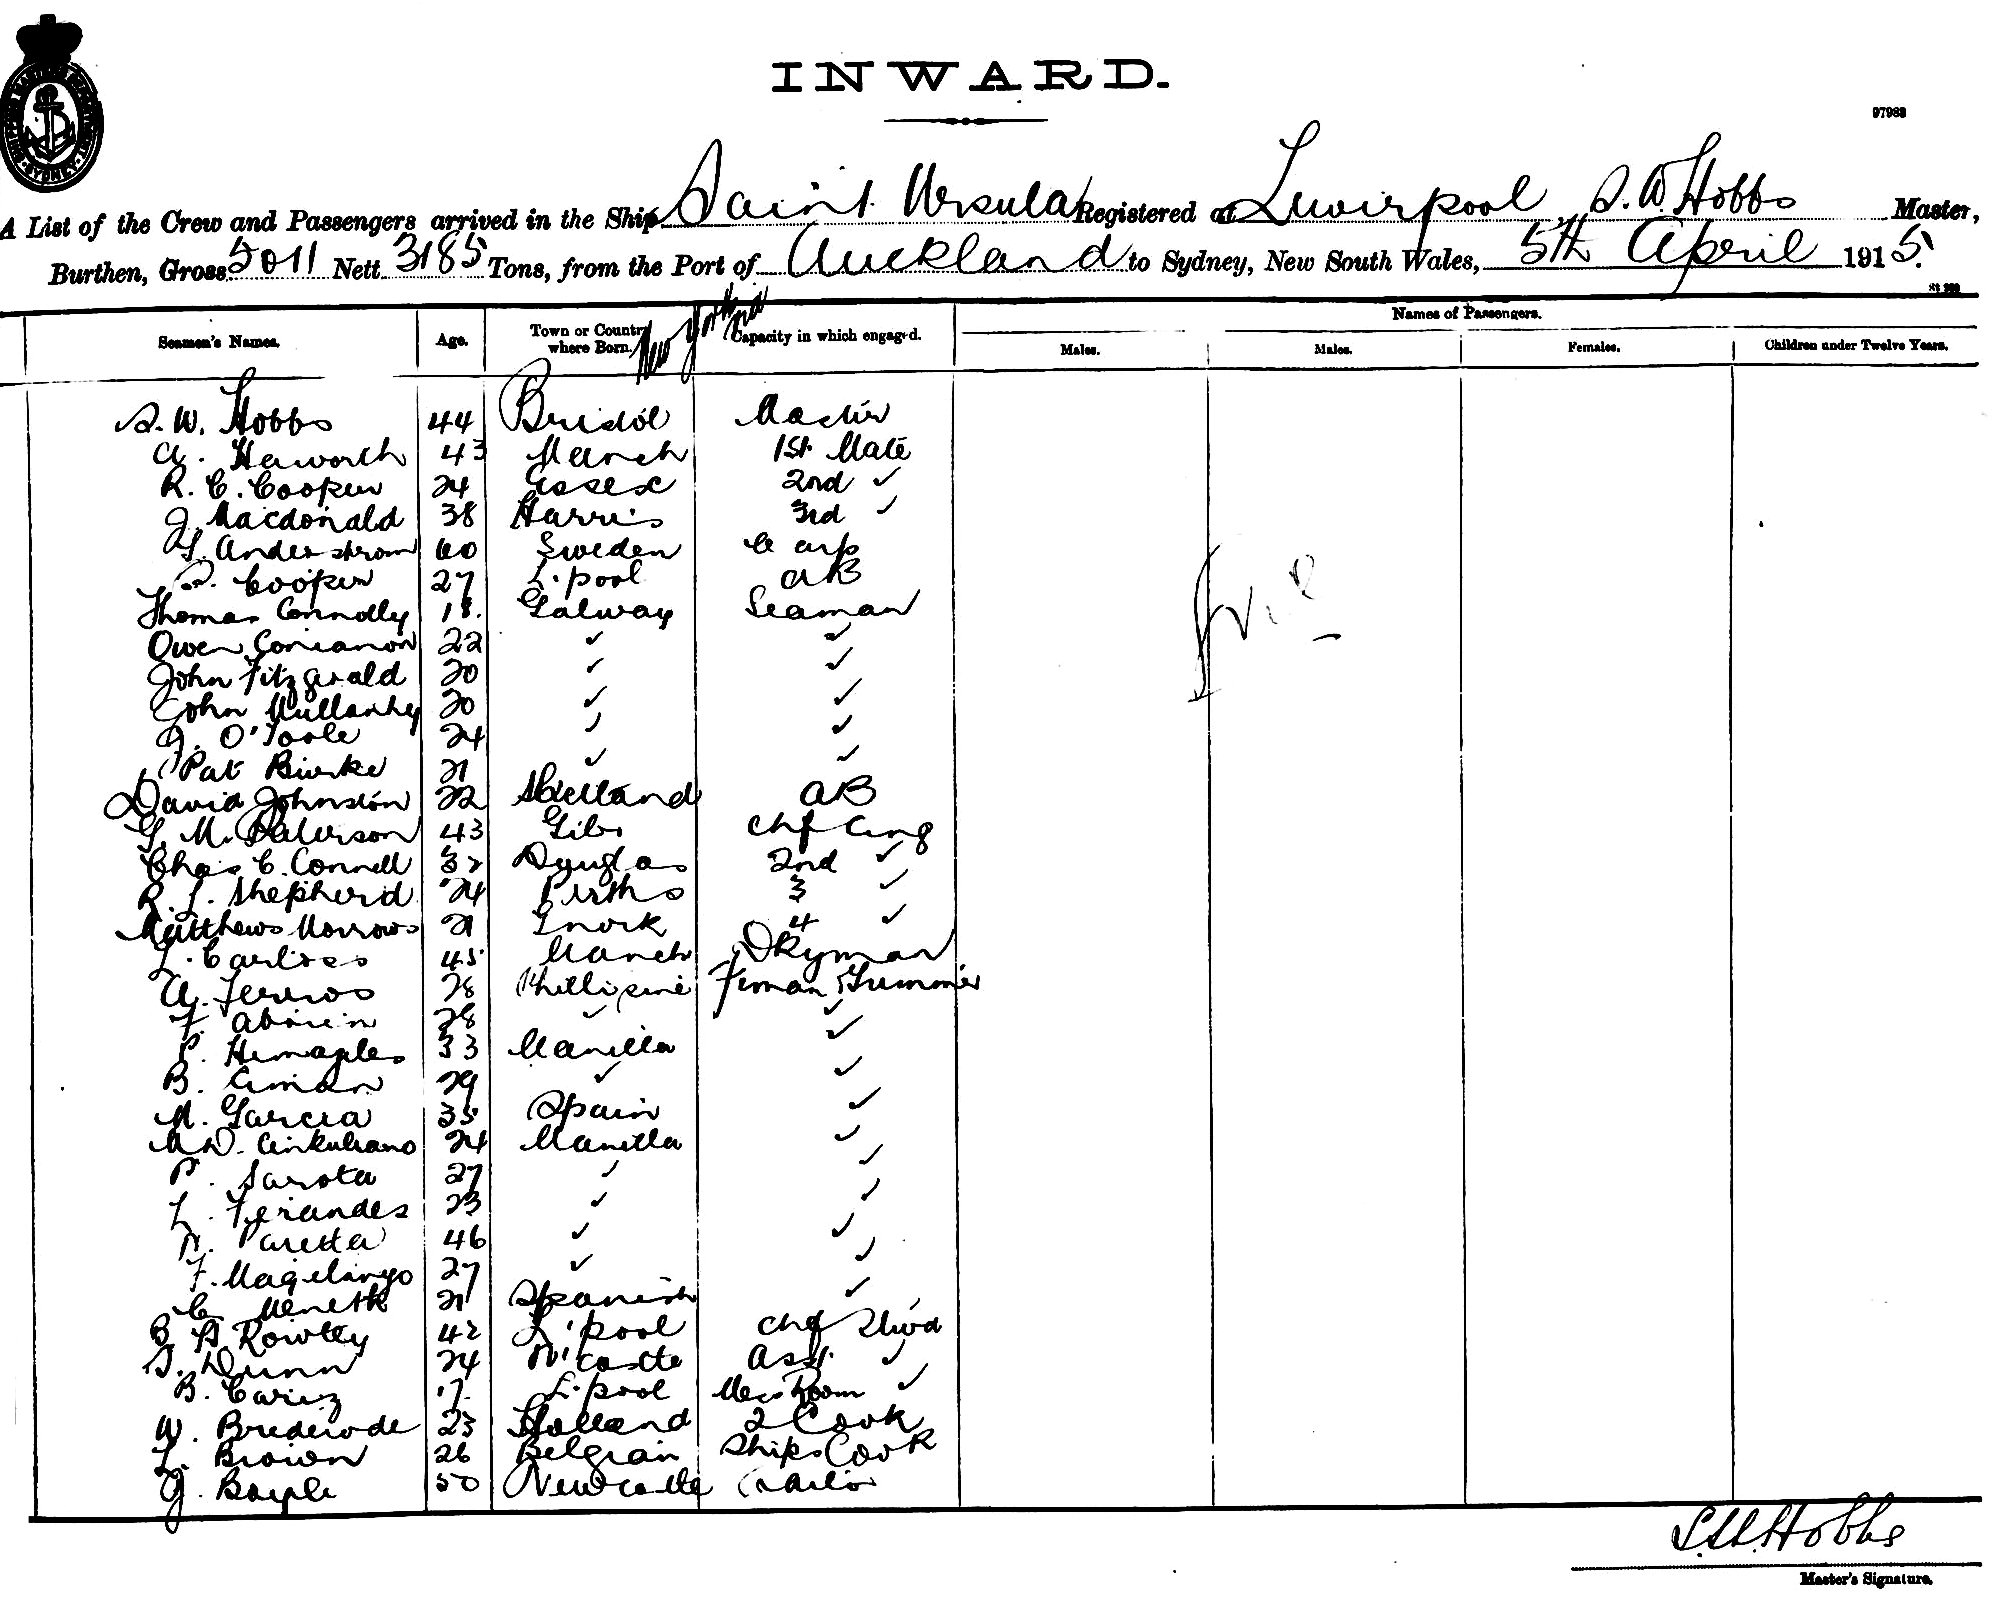 INWARD.
97983
A List of the Crew and Passengers arrived in the Ship Saint Ursula Registered at Liverpool S. W. Hobbs Master,
Burthen, Gross 5011 Nett 3185 Tons, from the Port of Auckland to Sydney, New South Wales, 5th April 1915.
New York via
Seamen's Names. Age. Town or Country where Born. Capacity in which engaged. Names of Passengers.
Males. Males. Females. Children under Twelve Years.
S. W. Hobbs 44 Bristol Master
A. Haworth 43 Manch 1st Mate
R. C. Cooper 24 Essex 2nd ✓
J. Macdonald 38 Harris 3rd ✓
Anderstrom 60 Sweden Carp
S. Cooper 27 L'pool AB
Thomas Connolly 18. Galway Seaman
Owen Concanon 22 ✓ ✓
John Fitzgerald 20 ✓ ✓
John Mullanhy 20 ✓ ✓
J. O'Toole 24 ✓ ✓
Pat Burke 21 ✓ ✓
David Johnston 22 Shetland AB
G. M. Paterson 43 Gib Chf Eng
Chas C. Connell 32 Douglas 2nd ✓
R. L. Shepherd 24 Perths 3 ✓
Matthews Morrows 21 Gnork 4 ✓
L. Carloss 45 Manch Dkyman
28 Phillipine Fireman & Trimmer
F. 28 ✓ ✓
P. 33 Manilla ✓
B. 29 ✓ ✓
M. Garcia 35 Spain ✓
24 Manilla ✓
P. Sarota 27 ✓ ✓
L. Ferandes 23 ✓ ✓
46 ✓ ✓
F. 27 ✓ ✓
C. 21 Spanish ✓
B Rowley 42 L'pool Chf Stwd
Dunn 24 N'castle Asst ✓
B. 17. L'pool Mess Room ✓
W. Brederode 23 Holland 2 Cook
L. Brown 26 Belgian Ships Cook
J. Boyle 50 Newcastle Sailor
S. W. Hobbs
Master's Signature.